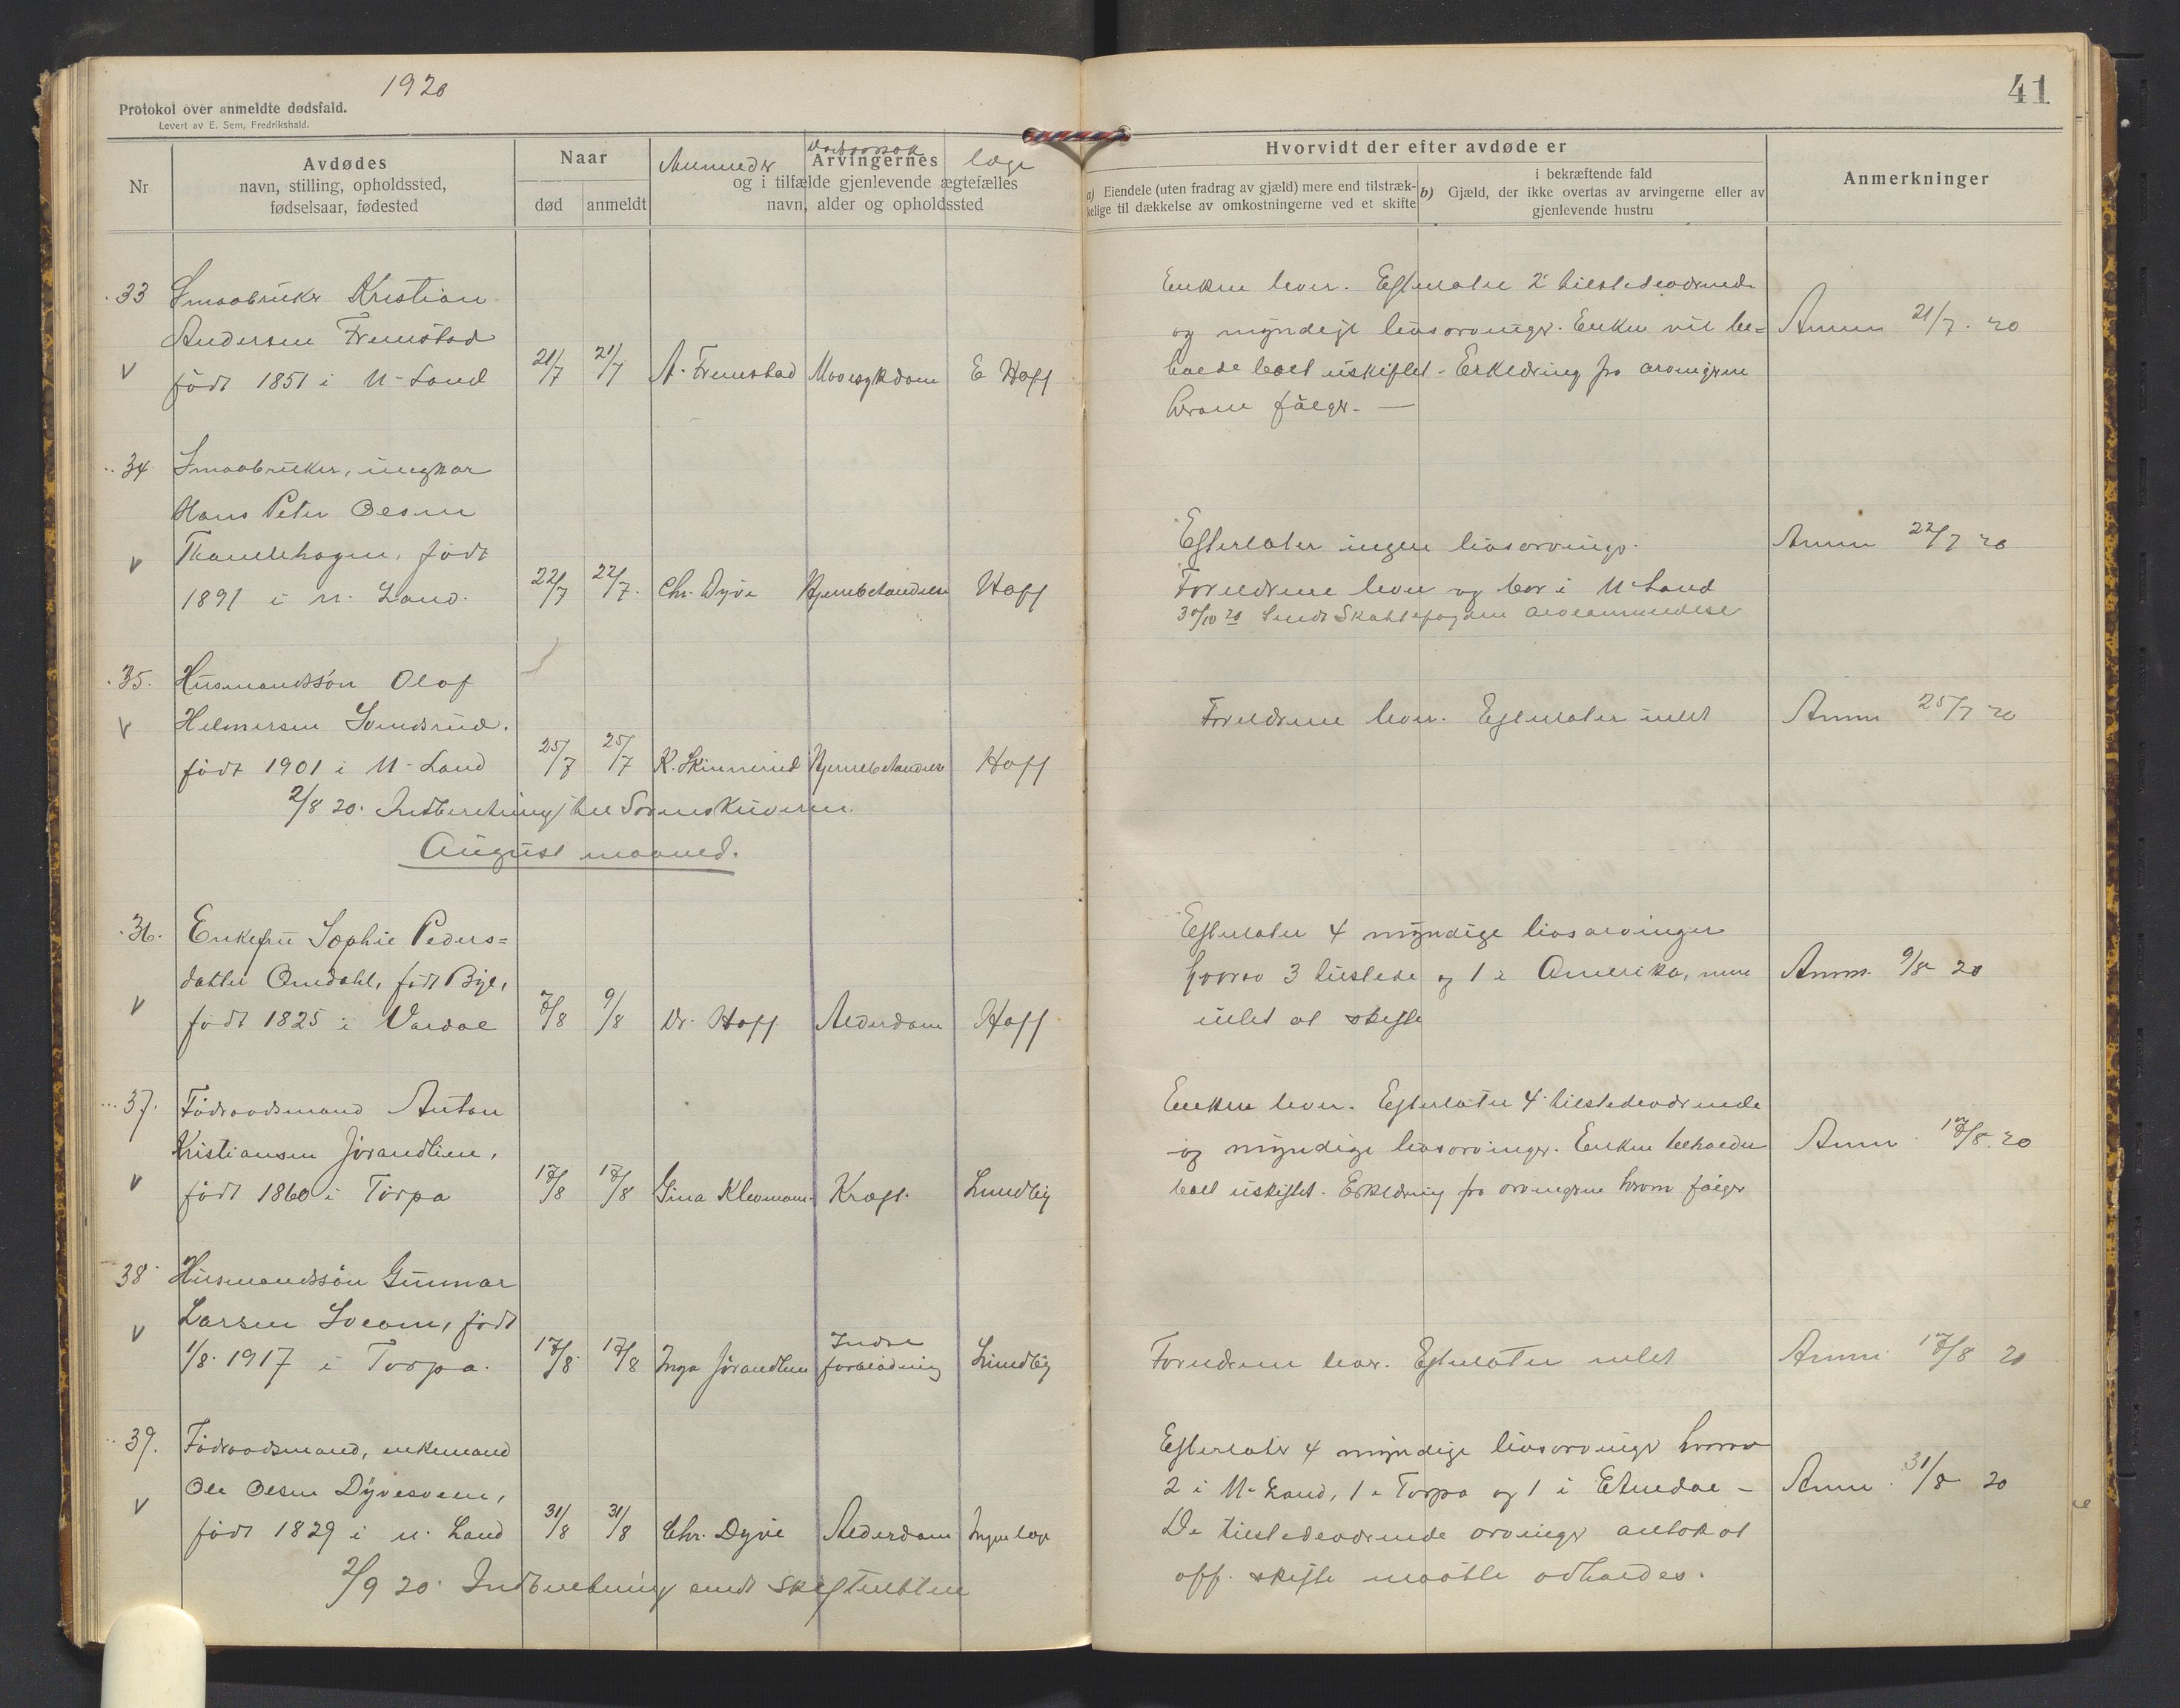 1920
Protokol over anmeldte dødsfald.
Levert av E. Sem, Fredrikshald.
Nr
Avdødes
navn, stilling, opholdssted,
fødselsaar, fødested
Naar
død
anmeldt
Anmelder
Dødsorsak
læge
Arvingernes
og i tilfælde gjenlevende ægtefælles
navn, alder og opholdssted
41
Hvorvidt der efter avdøde er
a) Eiendele (uten fradrag av gjæld) mere end tilstræk-
kelige til dækkelse av omkostningerne ved et skifte
i bekræftende fald
b) Gjæld, der ikke overtas av arvingerne eller av
gjenlevende hustru
Anmerkninger
33 Smaabruker Kristian
Andersen Fremstad
født 1851 i N-Land
21/7 21/7 A. Fremstad Mavesykdom E Hoff
Enken lever. Efterlater 2 tilstedeværende
og myndige livsarvinger. Enken vil be-
holde boet uskiftet - Erklæring fra arvingerne
herom følger. —
Anm 21/7. 20
34 Smaabruker, ungkar
Hans Peter Olsen
født
1891 i N. Land.
22/7 22/7. Chr. Dyve Hjernebetændelse Hoff
Efterlater ingen livsarvinger.
Forældrene lever og bor i N Land
30/10 20 Sendt Skattefogden arveanmeldelse
Anm 22/7 20
35. Husmandssøn Olaf
Helmersen
født 1901 i N-Land
25/7 25/7 K. Skinnerud Hjernebetændelse Hoff
Forældrene lever. Efterlater intet
Anm 25/7 20
2/8 20. Indberetning til Sorenskriveren.
August maaned.
36. Enkefru Sophie Peders=
datter Omdahl, født
født 1825 i Værdal
7/8 9/8 Dr. Hoff Alderdom Hoff
Efterlater 4 myndige livsarvinger
hvorav 3 tilstede og 1 i Amerika, men
intet at skifte
Anm. 9/8 20
37. Føderaadsmand Anton
Kristiansen Jørandlien,
født 1860 i Torpa
17/8 17/8 Gina Klevmoen Kræft. Lundby
Enken lever. Efterlater 4 tilstedeværende
og myndige livsarvinger. Enken beholder
boet uskiftet. Erklæring fra arvingerne herom følger
Anm 17/8. 20
38 Husmandssøn Gunnar
Larsen født
1/8. 1917 i Torpa.
17/8 17/8 Inga Jørandlien Indre forblødning Lundby
Forældrene lever. Efterlater intet
Anm 17/8 20
39. Føderaadsmand, enkemand
Ole Olsen Dyvesveen,
født 1829 i N. Land
31/8 31/8 Chr. Dyve Alderdom Ingen læge
Efterlater 4 myndige livsarvinger hvorav
2 i N. Land, 1 i Torpa og 1 i Etnedal -
De tilstedeværende arvinger antok at
off. skifte maatte avholdes.
Anm. 31/8 20
2/9 20. Indberetning sendt Skifteretten